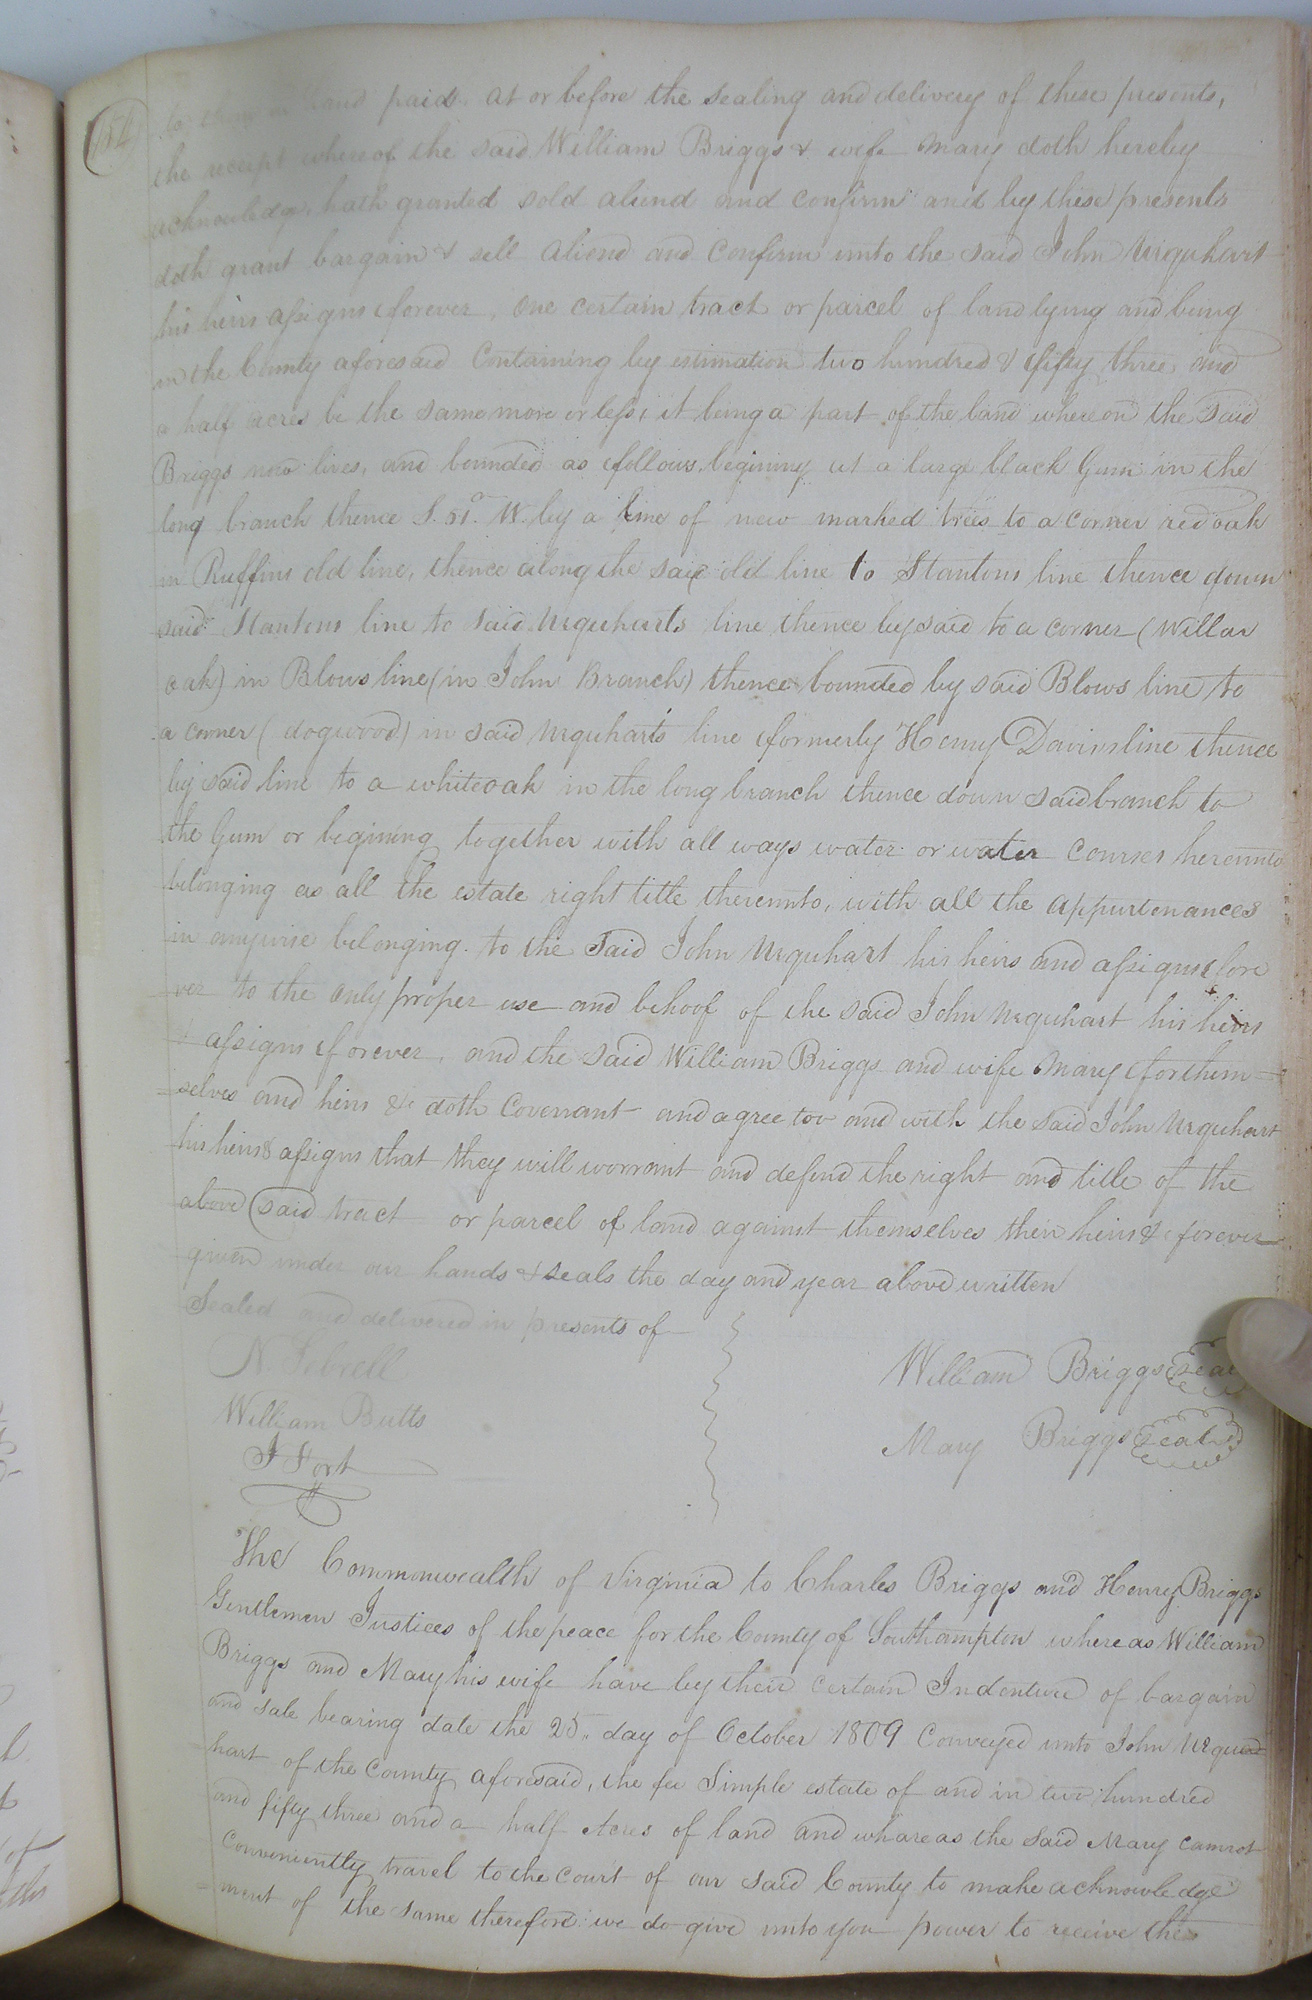 to them in hand paid at or before the sealing and delivery of these presents,
the receipt whereof the said William Briggs & wife Mary doth hereby
acknowledge, hath granted sold aliend and confirm and by these presents
doth grant bargain & sell aliend and confirm unto the said John Urquhart
his heirs assigns forever, one certain tract or parcel of land lying and being
in the County aforesaid Containing by estimation two hundred & fifty three and
a half acres be the same more or less, it being a part of the land whereon the said
Briggs now lives, and bounded as follows, begining at a large black Gum in the
long branch thence S. 51° W. by a line of new marked trees to a corner red oak
in Ruffins old line, thence along the said old line to Stantons line thence down
said Stantons line to said Urquharts line thence by said to a corner (Willar
oak) in Blows line (in John Branch) thence bounded by said Blows line to
a corner (dogwood) in said Urquharts line formerly Henry Davis line thence
by said line to a whiteoak in the long branch thence down said branch to
the Gum or begining together with all ways water or water Courses hereunto
belonging as all the estate right title thereunto, with all the appurtenances
in anywise belonging to the said John Urquhart his heirs and assigns fore
ver to the only proper use and behoof of the said John Urquhart his heirs
& assigns forever, and the said William Briggs and wife Mary for them
selves and heirs &c doth Covenant and agree too and with the said John Urquhart
his heirs & assigns that they will worrant and defend the right and title of the
above said tract or parcel of land against themselves their heirs &c forever
given under our hands & seals the day and year above written
Sealed and delivered in presents of
N Sebrell
William Briggs seal
William Butts
Mary Briggs seal
J Fort
The Commonwealth of Virginia to Charles Briggs and Henry Briggs
Gentlemen Justices of the peace for the County of Southampton whereas William
Briggs and Mary his wife have by their certain Indenture of bargain
and sale bearing date the 25.. day of October 1809 Conveyed unto John Urqu
hart of the County aforesaid, the fee Simple estate of and in two hundred
and fifty three and a half Acres of land and whareas the said Mary cannot
Conveniently travel to the court of our said County to make acknowledge
ment of the same therefore we do give unto you power to receive the